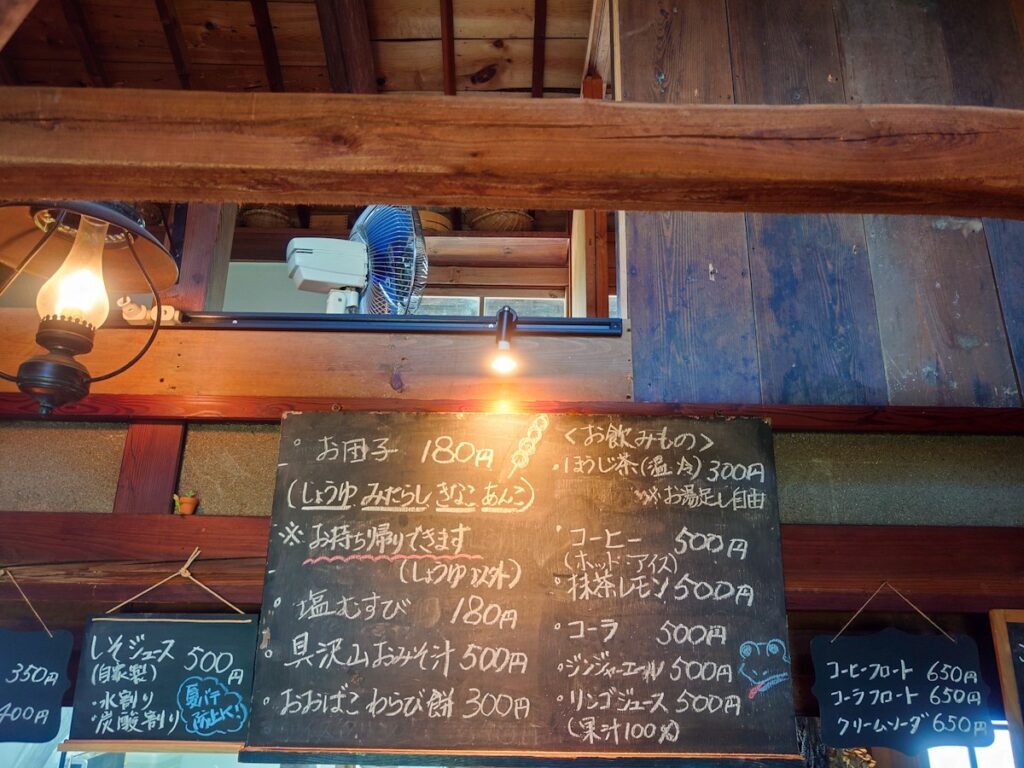 350円
400円
しそジュース
(自家製) 500円
・水割り
・炭酸割り
夏バテ
防止に!
。お団子 180円
(しょうゆ みたらし きなこ あんこ)
※ お持ち帰りできます
(しょうゆ以外)
。塩むすび 180円
。具沢山おみそ汁 500円
。おおばこわらび餅 300円
<お飲みもの>
・ほうじ茶(温・冷) 300円
お湯足し自由
。コーヒー 500円
(ホット・アイス)
。抹茶レモン 500円
。コーラ 500円
。ジンジャーエール 500円
。リンゴジュース 500円
(果汁100%)
コーヒーフロート 650円
コーラフロート 650円
クリームソーダ 650円